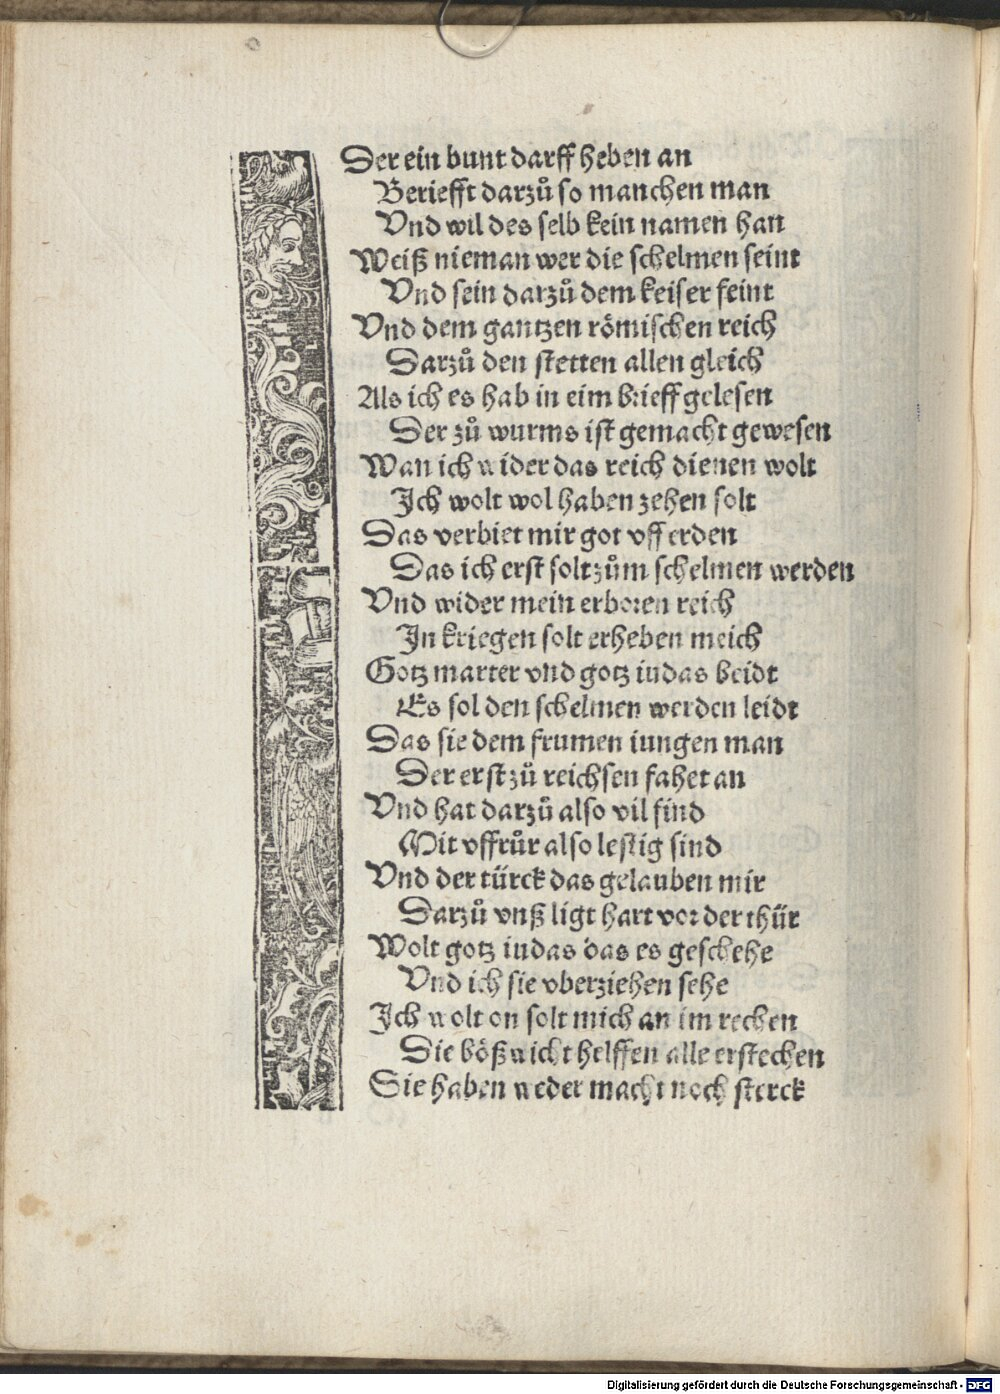 Der ein bunt darff heben an
Beriefft darzů so manchen man
Vnd wil des selb kein namen han
Weiß nieman wer die schelmen seint
Vnd sein darzů dem keiser feint
Vnd dem gantzen römischen reich
Darzů den stetten allen gleich
Als ich es hab in eim brieff gelesen
Der zů wurms ist gemacht gewesen
Wan ich wider das reich dienen wolt
Ich wolt wol haben zehen solt
Das verbiet mir got vff erden
Das ich erst solt zům schelmen werden
Vnd wider mein erboren reich
In kriegen solt erheben meich
Gotz marter vnd gotz iudas beidt
Es sol den schelmen werden leidt
Das sie dem frumen iungen man
Der erst zů reichsen fahet an
Vnd hat darzů also vil find
Mit vffrůr also lestig sind
Vnd der türck das gelauben mir
Darzů vnß ligt hart vor der thür
Wolt gotz iudas das es geschehe
Vnd ich sie vberziehen sehe
Ich wolt on solt mich an im rechen
Die bößwicht helffen alle erstechen
Sie haben weder macht noch sterck
Digitalisierung gefördert durch die Deutsche Forschungsgemeinschaft - DFG